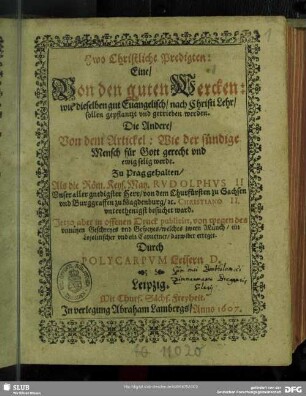 Zwo Christliche Predigten:
Eine/
Von den guten Wercken:
wie dieselben gut Euangelisch/ nach Christi Lehr/
sollen gepflantzt vnd getrieben werden.
Die Andere/
Von dem Artickel: Wie der sündige
Mensch für Gott gerecht vnd
ewig selig werde.
Zu Prag gehalten/
Als die Röm. Keys. May. RVDOLPHVS II
Vnser aller gnedigster Herr/ von dem Churfürsten zu Sachsen
vnd Burggraffen zu Magdenburg/ ꝛc. CHRISTIANO II.
vnterthenigst besuchet ward.
Jetzo aber in offenen Druck publicirt, von wegen des
vnnützen Geschreyes vnd Gespeyes/ welches zween Münch/ ein
darwider erreget.
Durch
POLYCARPVM Leisern D.
Leipzig,
Mit Churf. Sächs. Freyheit.
In verlegung Abraham Lambergs/ Anno 1607.
11020
SLUB
Wir führen Wissen.